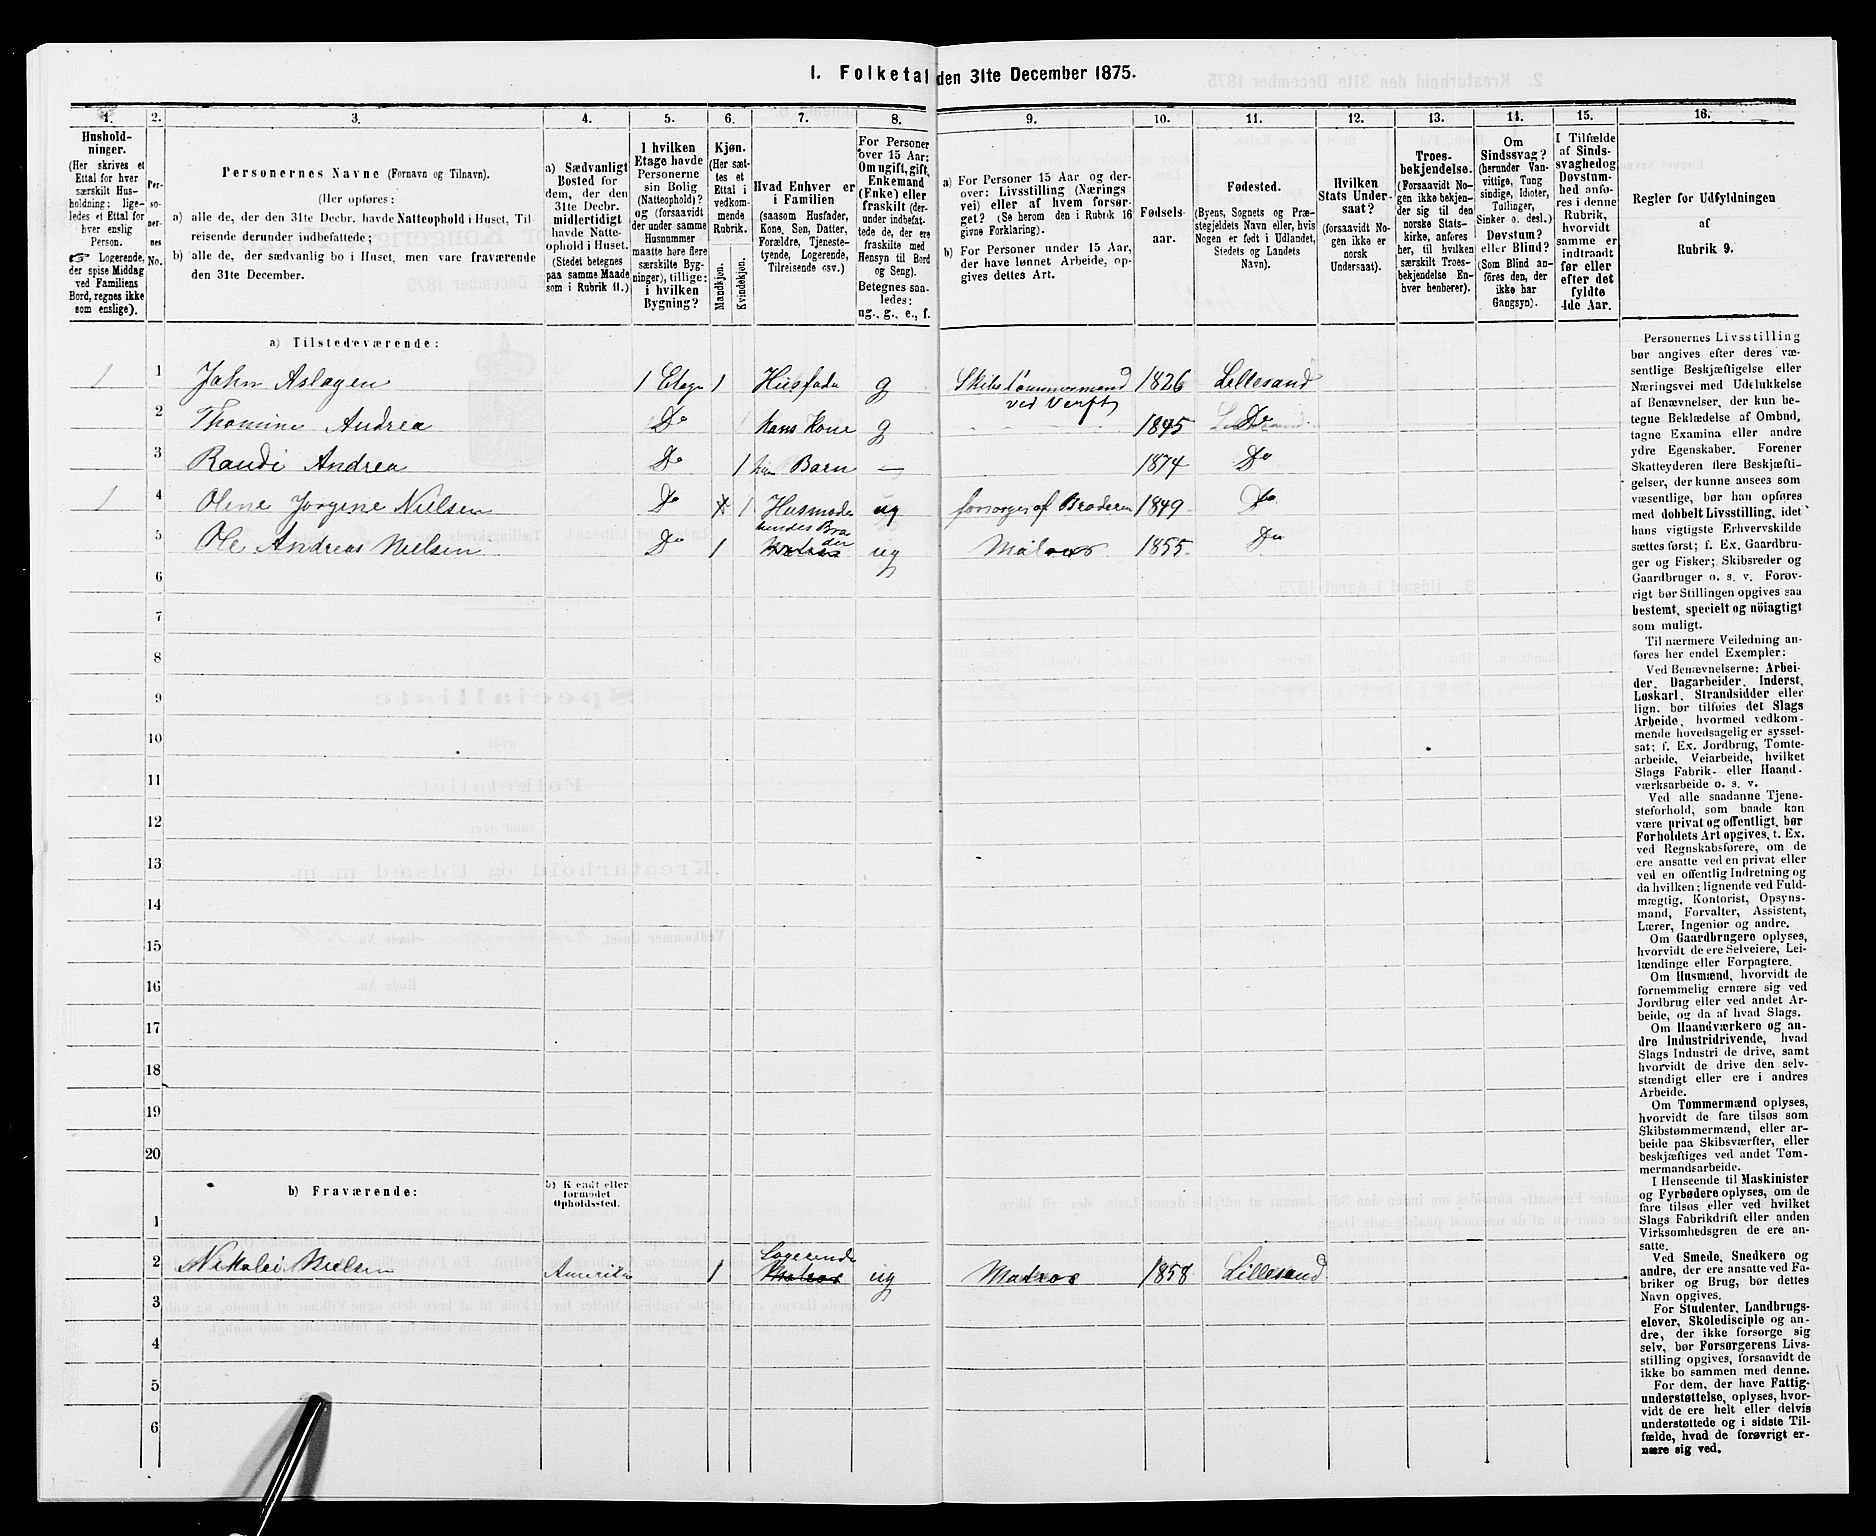 I. Folketal den 31te December 1875.
1. 2. 3. 4. 5. 6. 7. 8. 9. 10. 11. 12. 13. 14. 15. 16.
Hushold-
ninger.
(Her skrives et
Ettal for hver
særskilt Hus-
holdning; lige-
ledes et Ettal for
hver enslig
Person.
☞ Logerende,
der spise Middag
ved Familiens
Bord, regnes ikke
som enslige).
Per-
so-
ner-
nes
No.
Personernes Navne (Fornavn og Tilnavn).
(Her opføres:
a) alle de, der den 31te Decbr. havde Natteophold i Huset, Til-
reisende derunder indbefattede;
b) alle de, der sædvanlig bo i Huset, men vare fraværende
den 31te December.
a) Sædvanligt
Bosted for
dem, der den
31te Decbr.
midlertidigt
havde Natte-
ophold i Huset.
(Stedet betegnes
paa samme Maade
som i Rubrik 11.)
I hvilken
Etage havde
Personerne
sin Bolig
(Natteophold)?
og (forsaavidt
der under samme
Husnummer
maatte høre flere
særskilte Byg-
ninger), tillige:
i hvilken
Bygning?
Kjøn.
(Her sæt-
tes et
Ettal i
vedkom-
mende
Rubrik.
Mandkjøn.
Kvindekjøn.
Hvad Enhver er
i Familien
(saasom Husfader,
Kone, Søn, Datter,
Forældre, Tjeneste-
tyende, Logerende,
Tilreisende osv.)
For Personer
over 15 Aar:
Om ugift, gift,
Enkemand
(Enke) eller
fraskilt (der-
under indbefat-
tede de, der ere
fraskilte med
Hensyn til Bord
og Seng).
Betegnes saa-
ledes:
ug., g., e., f.
a) For Personer 15 Aar og der-
over: Livsstilling (Nærings
vei) eller af hvem forsør-
get? (Se herom den i Rubrik 16
givne Forklaring).
b) For Personer under 15 Aar,
der have lønnet Arbeide, op-
gives dettes Art.
Fødsels-
aar.
Fødested.
(Byens, Sognets og Præ-
stegjeldets Navn eller, hvis
Nogen er født i Udlandet,
Stedets og Landets
Navn).
Hvilken
Stats Under-
saat?
(forsaavidt No-
gen ikke er
norsk
Undersaat).
Troes-
bekjendelse.
(Forsaavidt No-
gen ikke bekjen-
der sig til den
norske Stats-
kirke, anføres
her, til hvilken
særskilt Troes-
bekjendelse En-
hver henhører).
Om
Sindssvag?
(herunder Van-
vittige, Tung
sindige, Idioter,
Tullinger,
Sinker o. desl.)
Døvstum?
eller Blind?
(Som Blind an-
føres den, der
ikke har
Gangsyn).
I Tilfælde
af Sinds-
svaghedog
Døvstum-
hed anfø-
res i denne
Rubrik,
hvorvidt
samme er
indtraadt
før eller
efter det
fyldte
4de Aar.
Regler for Udfyldningen
af
Rubrik 9.
a) Tilstedeværende:
1 1 John Aslagen 1 Etage 1 Husfader g Skibstømmermand 1826 Lillesand
ved Verft
2 Thomine Andrea Do 1 hans Kone g 1845 Do
3 Randi Andrea Do 1 Barn — 1874 Do
1 4 Oline Jorgine Nielsen Do 1 Husmoder ug forsørges af Broderen 1849 Do
hendes Bro
5 Ole Andreas Nielsen Do 1 der ug Matros 1855 Do
6
7
8
9
10
11
12
13
14
15
16
17
18
19
20
b) Fraværende:
b) Kjendt eller
formodet
Opholdssted.
1
Logerende
2 Nikolai Nielsen Amerika 1 Matros ug Matros 1858 Lillesand
3
4
5
6
Personernes Livsstilling
bør angives efter deres væ-
sentlige Beskjæftigelse eller
Næringsvei med Udelukkelse
af Benævnelser, der kun be-
tegne Beklædelse af Ombud,
tagne Examina eller andre
ydre Egenskaber. Forener
Skatteyderen flere Beskjæfti-
gelser, der kunne ansees som
væsentlige, bør han opføres
med dobbelt Livsstilling, idet
hans vigtigste Erhvervskilde
sættes først; f. Ex. Gaardbru-
ger og Fisker; Skibsreder og
Gaardbruger o. s. v. Forøv-
rigt bør Stillingen opgives saa
bestemt, specielt og nöiagtigt
som muligt.
Til nærmere Veiledning an-
føres her endel Exempler:
Ved Benævnelserne: Arbei-
der, Dagarbeider, Inderst,
Løskarl, Strandsidder eller
lign. bør tilføies det Slags
Arbeide, hvormed vedkom-
mende hovedsagelig er syssel-
sat; f. Ex. Jordbrug, Tomte-
arbeide, Veiarbeide, hvilket
Slags Fabrik- eller Haand-
værksarbeide o. s. v.
Ved alle saadanne Tjene-
steforhold, som baade kan
være privat og offentligt, bør
Forholdets Art opgives, t. Ex.
ved Regnskabsførere, om de
ere ansatte ved en privat eller
ved en offentlig Indretning og
da hvilken; lignende ved Fuld-
mægtig, Kontorist, Opsyns-
mand, Forvalter, Assistent,
Lærer, Ingeniør og andre.
Om Gaardbrugere oplyses,
hvorvidt de ere Selveiere, Lei-
lændinge eller Forpagtere.
Om Husmænd, hvorvidt de
fornemmelig ernære sig ved
Jordbrug eller ved andet Ar-
beide, og da af hvad Slags.
Om Haandværkere og an-
dre Industridrivende, hvad
Slags Industri de drive, samt
hvorvidt de drive den selv-
stændigt eller ere i andres
Arbeide.
Om Tømmermænd oplyses,
hvorvidt de fare tilsøs som
Skibstømmermænd, eller ar-
beide paa Skibsværfter, eller
beskjæftiges ved andet Tøm-
mermandsarbeide.
I Henseende til Maskinister
og Fyrbødere oplyses, om de
fare tilsøs eller ved hvilket
Slags Fabrikdrift eller anden
Virksomhedsgren de ere an-
satte.
Ved Smede, Snedkere og
andre, der ere ansatte ved Fa-
briker og Brug, bør dettes
Navn opgives.
For Studenter, Landbrugs-
elever, Skoledisciple og an-
dre, der ikke forsørge sig
selv, bør Forsørgerens Livs-
stilling opgives, forsaavidt de
ikke bo sammen med denne.
For dem, der have Fattig-
understøttelse, oplyses, hvor-
vidt de ere helt eller delvis
understøttede og i sidste Til-
fælde, hvad de forøvrigt er-
nære sig ved.